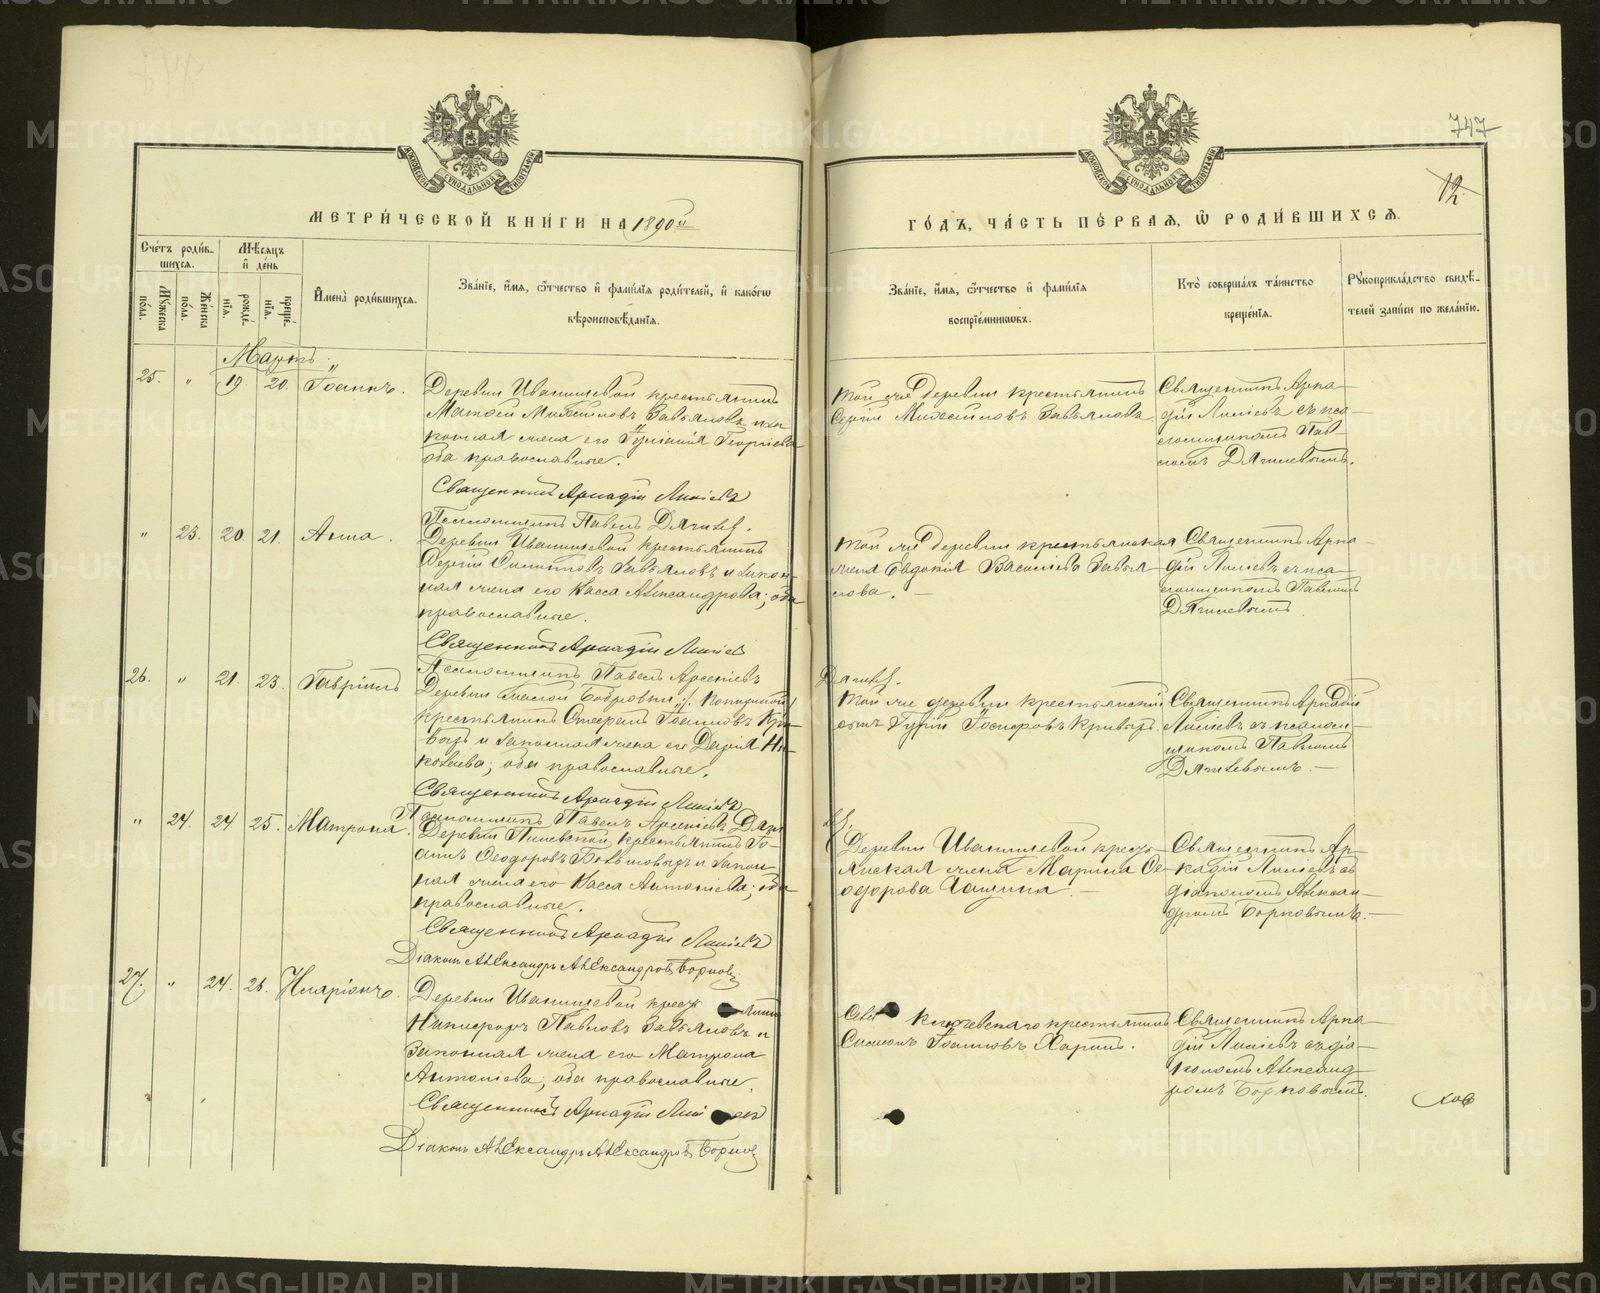 747
12.
МЕТРИ́ЧЕСКОЙ КНИ́ГИ НА 1890й
ГО́ДЪ, ЧА́СТЬ ПЕ́РВАѦ, Ѡ҆ РОДИ́ВШИХСѦ.
Счéтъ роди́в-
шихсѧ.
Мꙋжеска
пóла.
Женска
пóла.
Мѣ́сѧцъ
и҆ де́нь
рожде́-
нїѧ.
креще́-
нїѧ.
И҆мена̀ роди́вшихсѧ.
Зва́нїе, и҆́мѧ, ѻ҆́тчество и҆ фами́лїѧ роди́телей, и҆ како́гѡ
вѣроисповѣ́данїѧ.
Зва́нїе, и҆́мѧ, ѻ҆́тчество и҆ фами́лїѧ
воспрїе́мниковъ.
Кто̀ соверша́лъ та́инство
креще́нїѧ.
Рꙋкоприкла́дство свидѣ́-
телей за́писи по жела́нїю.
Мартъ.
25. " 19 20. Іоаннъ.
Деревни Иванищевой крестьянинъ
Матѳей Михайловъ Завьяловъ и за-
конная жена его Георгіева
оба православные.
Священникъ Аркадій
Псаломщикъ Павелъ Дягилев.
той же деревни крестьянинъ
Сергій Михайловъ Завьяловъ
Священникъ Арка-
дій съ пса-
ломщикомъ Пав-
ломъ Дягилевымъ.
" 23. 20. 21. Анна.
Деревни Иванищевой крестьянинъ
Завьяловъ и закон-
ная жена его Васса Александрова; оба
православные.
Священникъ Аркадій
Псаломщикъ Павелъ Арсеніевъ
Дягилев.
той же деревни крестьянская
жена Евдокія Васильева Завья-
лова.
Священникъ Арка-
дій съ пса-
ломщикомъ Павломъ
Дягилевымъ.
26. " 21. 23. Гавріилъ
Деревни
крестьянинъ Стефанъ Іоанновъ Кри-
и законная жена его Дарія Ни-
колаева; оба православные.
Священникъ Аркадій
Псаломщикъ Павелъ Арсеніевъ Дяги
лев.
той же деревни крестьянскій
сынъ Гурій Іосифовъ
Священникъ Аркадій
съ псалом-
щикомъ Павломъ
Дягилевымъ.
" 24. 24 25. Матрона.
Деревни крестьянинъ Іо-
аннъ Ѳеодоровъ и закон-
ная жена его Васса Антоніева; оба
православные.
Священникъ Аркадій
Діаконъ Александръ Александровъ Борковъ
Деревни Иванищевой кресть-
янская жена Марина Ѳе-
одорова
Священникъ Ар-
кадій съ
діакономъ Алексан-
дромъ Борковымъ.
27. " 24. 26. Иларіонъ.
Деревни Иванищевой кресть янинъ
Никифоръ Павловъ Завьяловъ и
законная жена его Матрона
Антоніева, оба православные.
Священникъ Аркадій
Діаконъ Александръ Александровъ Борковъ
Села Ключевскаго крестьянинъ
Симеонъ Іоанновъ Харинъ.
Священникъ Арка-
дій съ діа-
кономъ Александ-
ромъ Борковымъ.